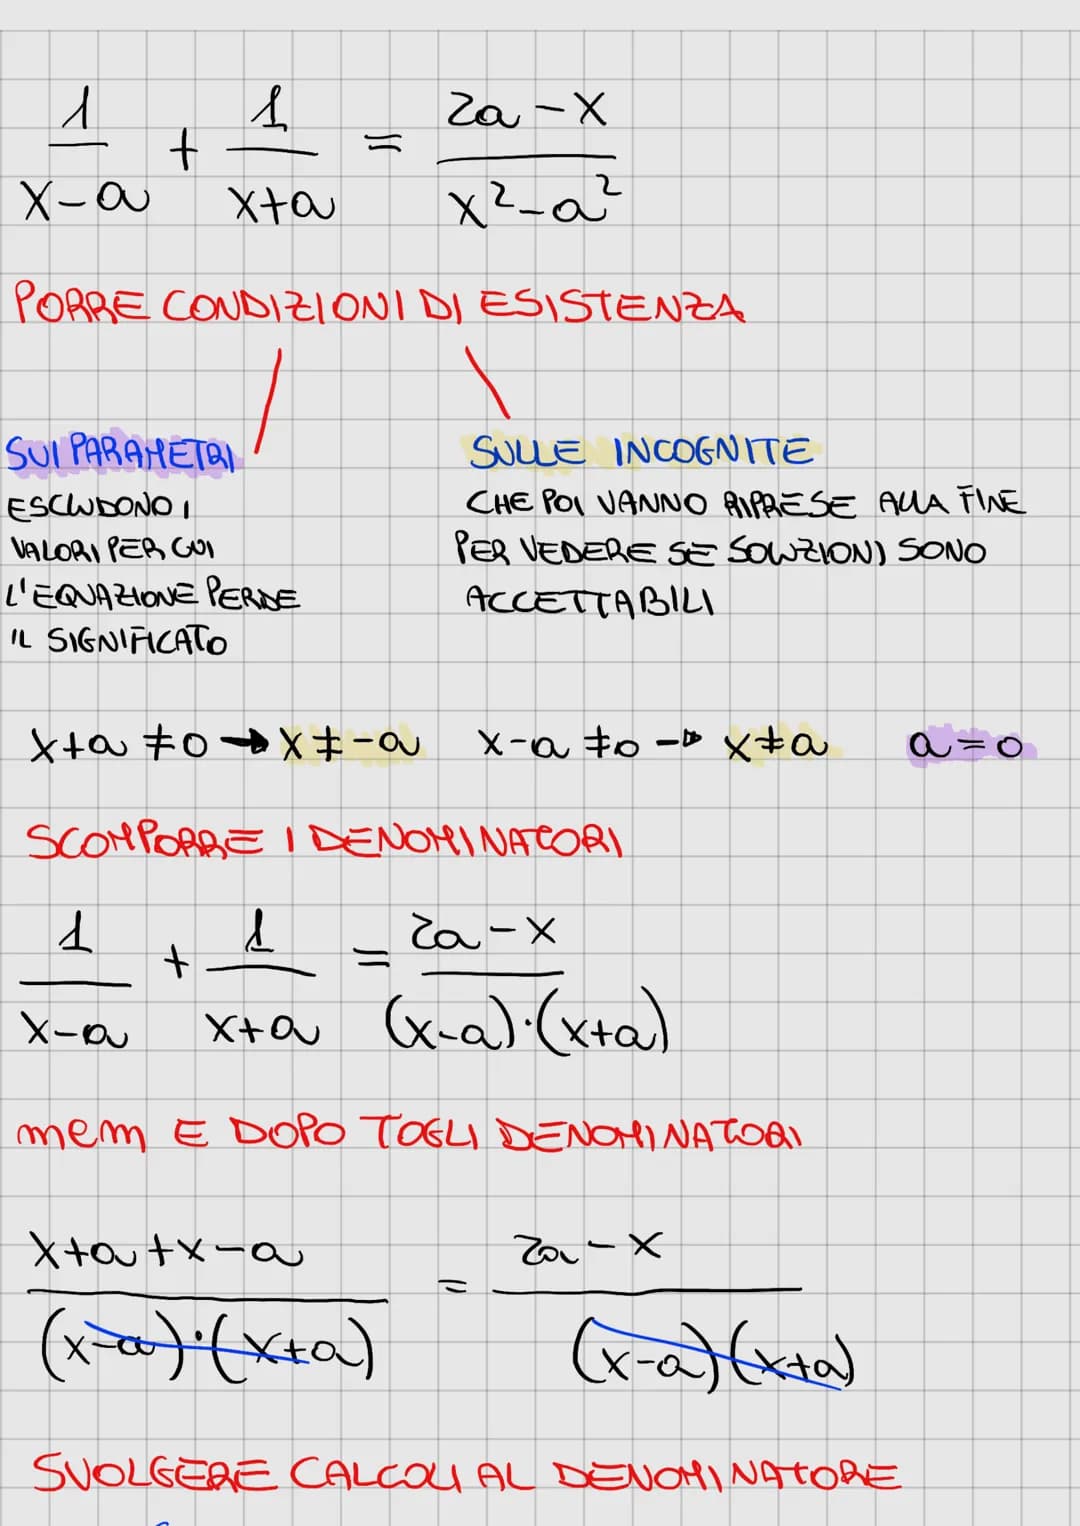 1/(x-a) + 1/(x+a) = (2a-x)/(x²-a²)
PORRE CONDIZIONI DI ESISTENZA
SUI PARAMETRI
ESCLUDONO I
VALORI PER CUI
L'EQUAZIONE PERDE
IL SIGNIFICATO
SULLE INCOGNITE
CHE POI VANNO RIPRESE ALLA FINE
PER VEDERE SE SOLUZIONI SONO
ACCETTABILI
x+a ≠ 0 → x ≠ -a x-a ≠ 0 → x ≠ a a = 0
SCOMPORRE I DENOMINATORI
1/(x-a) + 1/(x+a) = (2a-x)/((x-a)·(x+a))
mcm E DOPO TOGLI DENOMINATORI
(x+a+x-a)/((x-a)·(x+a)) = (2a-x)/((x-a)(x+a))
SVOLGERE CALCOLI AL DENOMINATORE